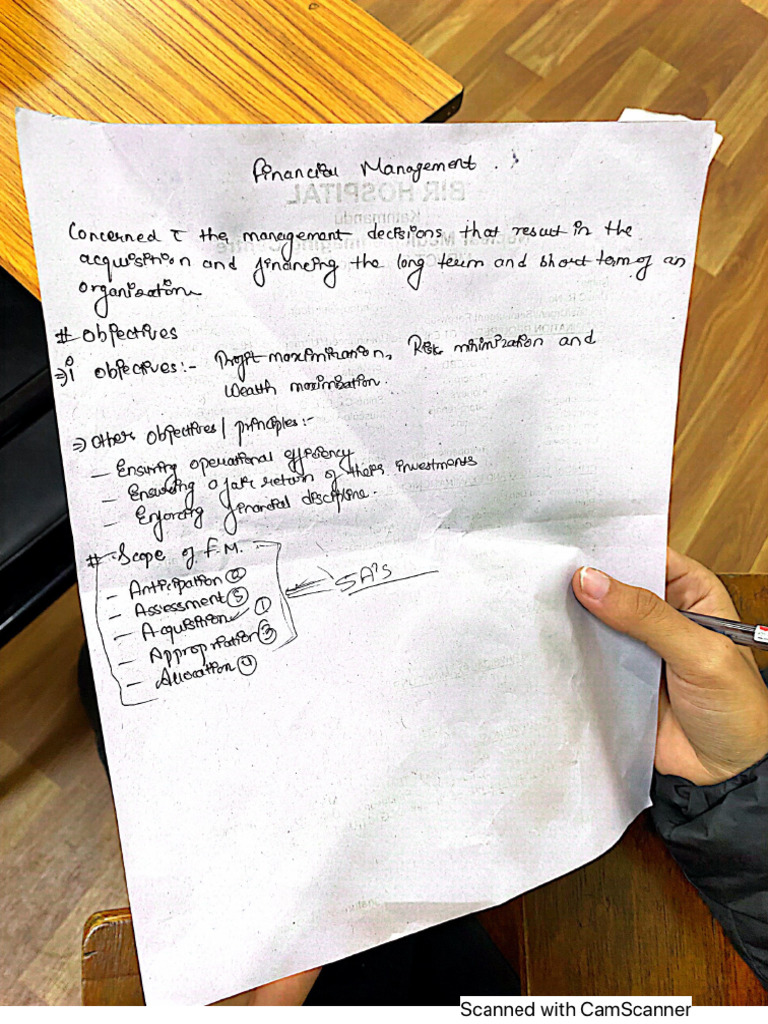 Financial Management.
Concerned c̄ the management decisions that result in the
acquisition and financing the long term and short term of an
organization
# Objectives
⇒ i objectives:- Profit maximization, Risk minimization and
Wealth maximization.
⇒ Others objectives / principles:-
- Ensuring operational efficiency
- Ensuring a fair return of their investments
- Enforcing financial discipline.
# Scope of F.M.
- Anticipation ②
- Assessment ⑤
- Acquisition ①
- Appropriation ③
- Allocation ④
5 A's
BIR HOSPITAL
Kathmandu
Scanned with CamScanner